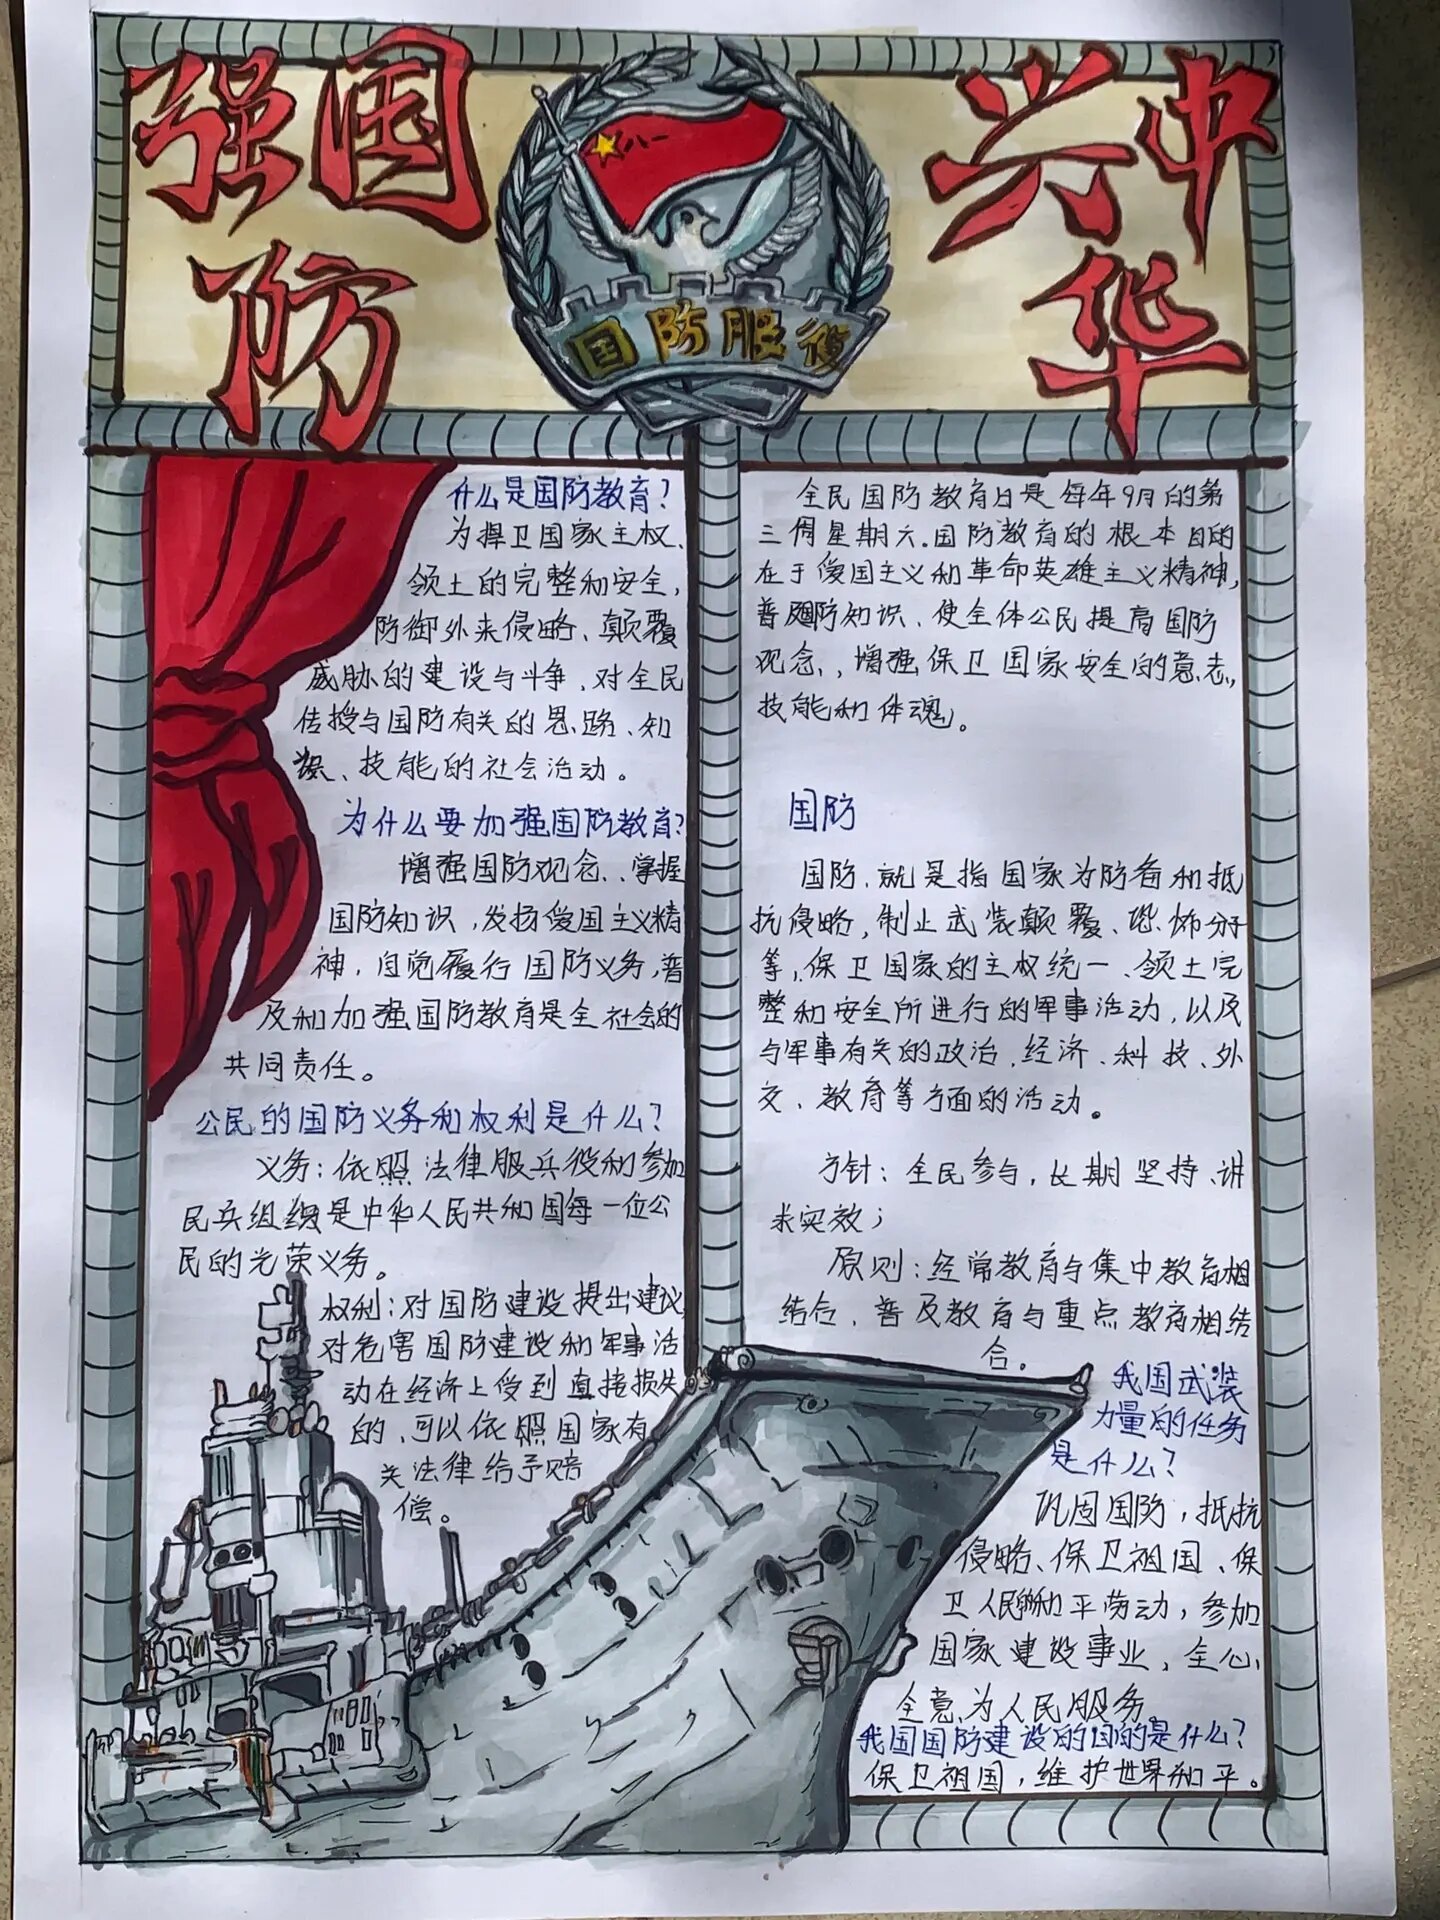 强国
防
兴中
华
八一
国防服役
什么是国防教育?
为捍卫国家主权、
领土的完整和安全,
防御外来侵略、颠覆
威胁的建设与斗争,对全民
传授与国防有关的思路、知
识、技能的社会活动。
为什么要加强国防教育?
增强国防观念、掌握
国防知识,发扬爱国主义精
神,自觉履行国防义务,普
及和加强国防教育是全社会的
共同责任。
公民的国防义务和权利是什么?
义务:依照法律服兵役和参加
民兵组织是中华人民共和国每一位公
民的光荣义务。
权利:对国防建设提出建议,
对危害国防建设和军事活
动在经济上受到直接损失
的,可以依照国家有
关法律给予赔
偿。
全民国防教育日是每年9月的第
三周星期六.国防教育的根本目的
在于爱国主义和革命英雄主义精神,
普及国防知识、使全体公民提高国防
观念,增强保卫国家安全的意志,
技能和体魂。
国防
国防,就是指国家为防备和抵
抗侵略,制止武装颠覆、恐怖分子
等,保卫国家的主权统一、领土完
整和安全所进行的军事活动,以及
与军事有关的政治,经济、科技、外
交、教育等方面的活动。
方针:全民参与,长期坚持、讲
求实效;
原则:经常教育与集中教育相
结合,普及教育与重点教育相结
合。
我国武装
力量的任务
是什么?
巩固国防,抵抗
侵略、保卫祖国、保
卫人民的和平劳动,参加
国家建设事业,全心
全意为人民服务
我国国防建设的目的是什么?
保卫祖国,维护世界和平。